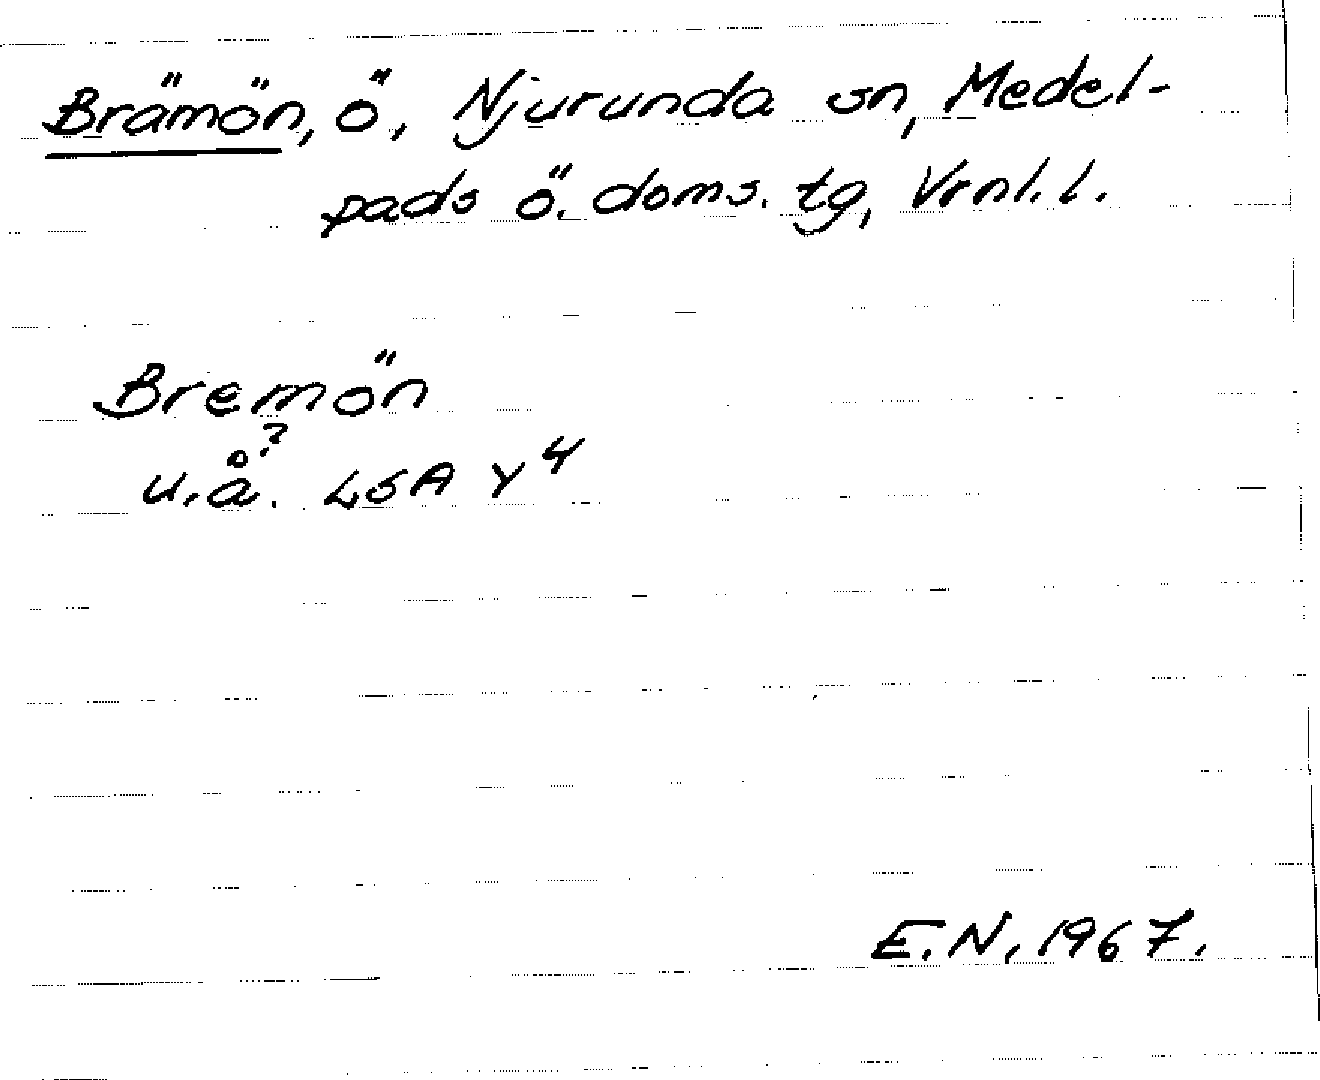 Brämön, ö, Njurunda sn, Medel-
pads ö. doms. tg, Vrnl. l.
Bremön
?
u.å. LSA Y 4
E.N. 1967.